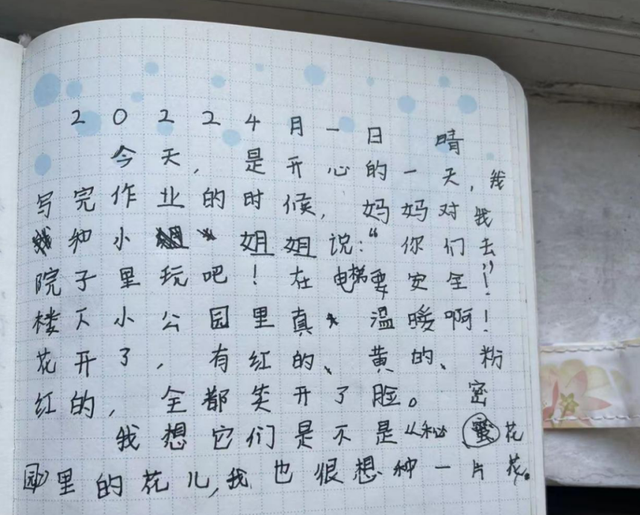 2022 4月一日 晴
今天，是开心的一天，我
写完作业的时候，妈妈对我
和小姐姐说：“你们去
院子里玩吧！在电梯要安全！”
楼下小公园里真温暖啊！
花开了，有红的、黄的、粉
红的，全都笑开了脸。
我想它们是不是“秘密花
园”里的花儿，我也很想种一片花。